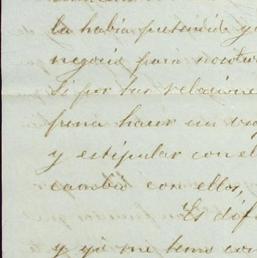 la había pretendido y
negocio para nosotro
Es por tus relacione
pena hacer un via
y estipular con el
cambio con ellos,
Es dif
y yo me temo con